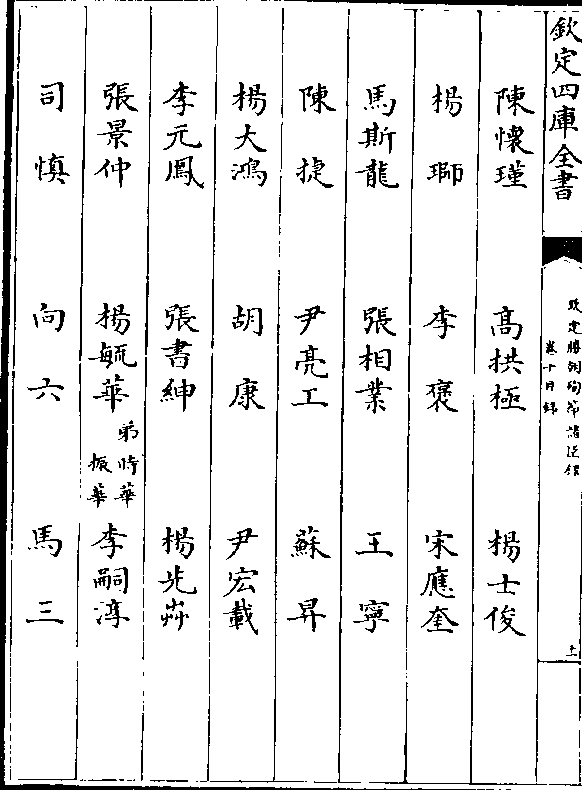 欽定四庫全書
欽定勝朝殉節諸臣錄
卷十目錄
十一
陳懷瑾 高拱極 楊士俊
楊瑡 李褒 宋應奎
馬斯龍 張相業 王寧
陳捷 尹亮工 蘇昇
楊大鴻 胡康 尹宏載
李元鳳 張書紳 楊先
張景仲 楊毓華 弟時華 振華 李嗣淳
司慎 向六 馬三